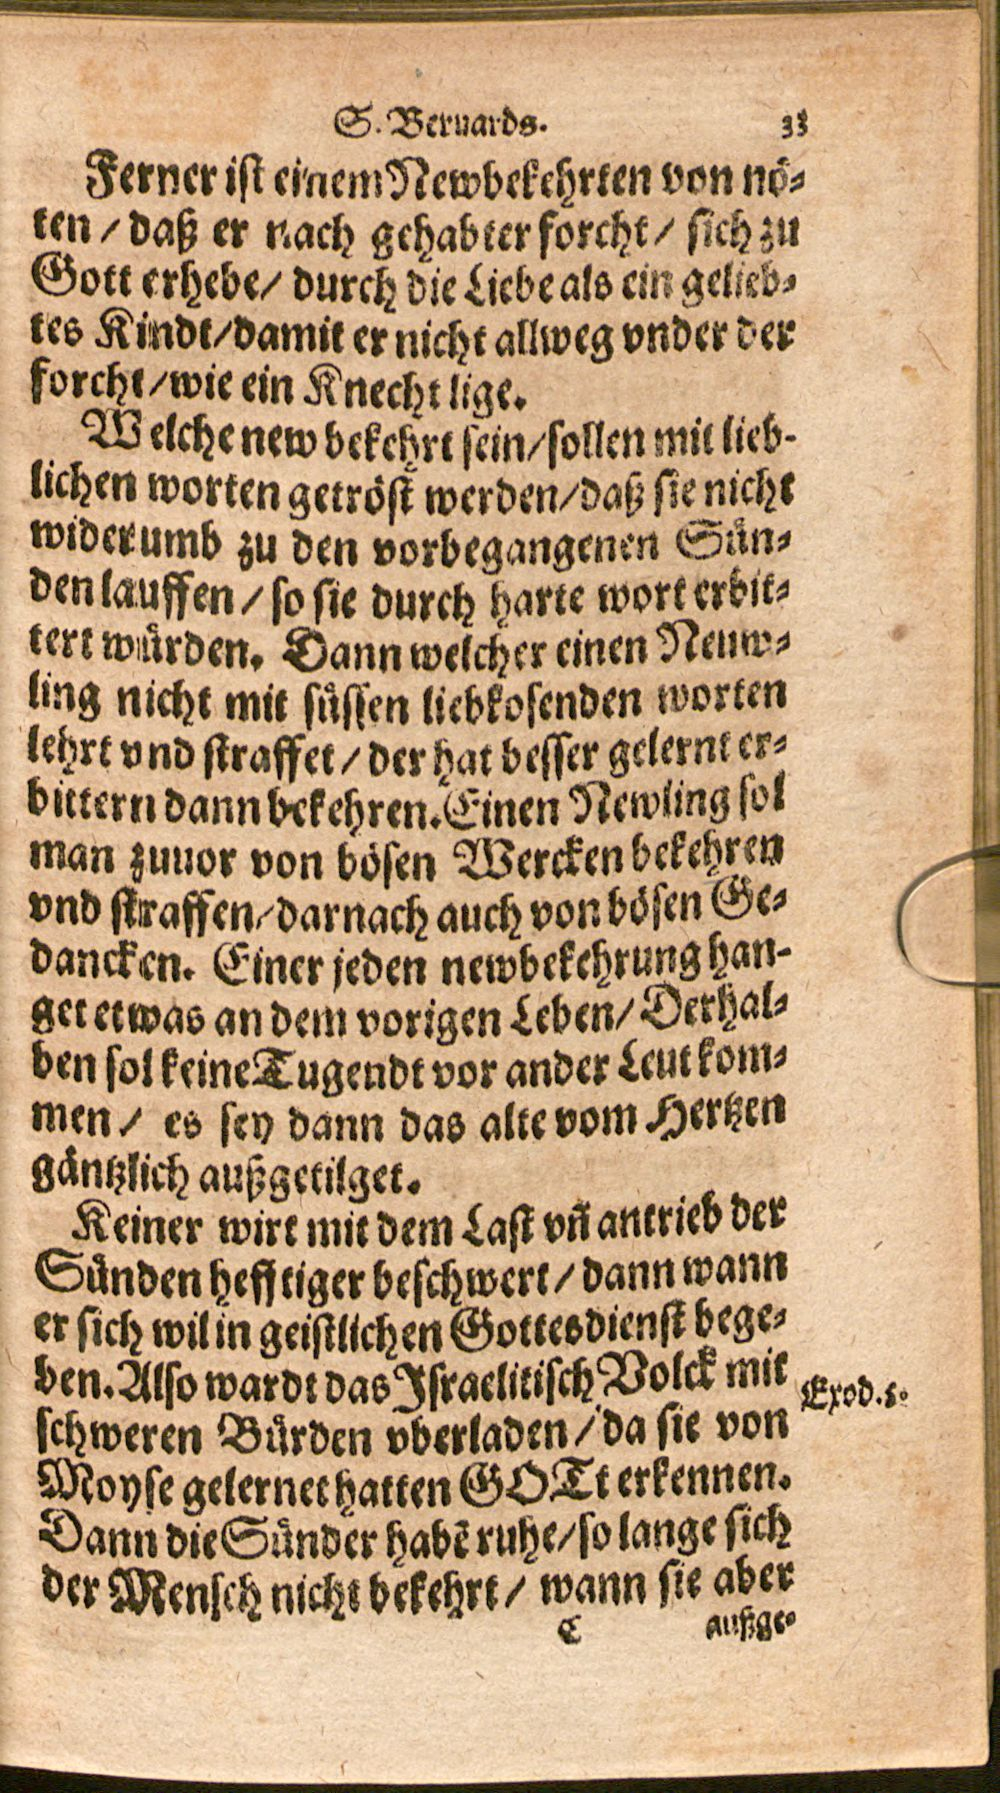 S. Bernards. 33
Ferner ist einem Newbekehrten von nö-
ten / daß er nach gehabter forcht / sich zu
Gott erhebe / durch die Liebe als ein gelieb-
tes Kindt / damit er nicht allweg vnder der
forcht / wie ein Knecht lige.
Welche new bekehrt sein / sollen mit lieb-
lichen worten getröst werden / daß sie nicht
widerumb zu den vorbegangenen Sün-
den lauffen / so sie durch harte wort erbit-
tert würden. Dann welcher einen Neuw-
ling nicht mit süssen liebkosenden worten
lehrt vnd straffet / der hat besser gelernt er-
bittern dann bekehren. Einen Newling sol
man zuuor von bösen Wercken bekehren
vnd straffen / darnach auch von bösen Ge-
dancken. Einer jeden newbekehrung han-
get etwas an dem vorigen Leben / Derhal-
ben sol keine Tugendt vor ander Leut kom-
men / es sey dann das alte vom Hertzen
gäntzlich außgetilget.
Keiner wirt mit dem Last vñ antrieb der
Sünden hefftiger beschwert / dann wann
er sich wil in geistlichen Gottesdienst bege-
ben. Also wardt das Israelitisch Volck mit
Exod. 5.
schweren Bürden vberladen / da sie von
Moyse gelernet hatten GOTt erkennen.
Dann die Sünder habē ruhe / so lange sich
der Mensch nicht bekehrt / wann sie aber
C außge-